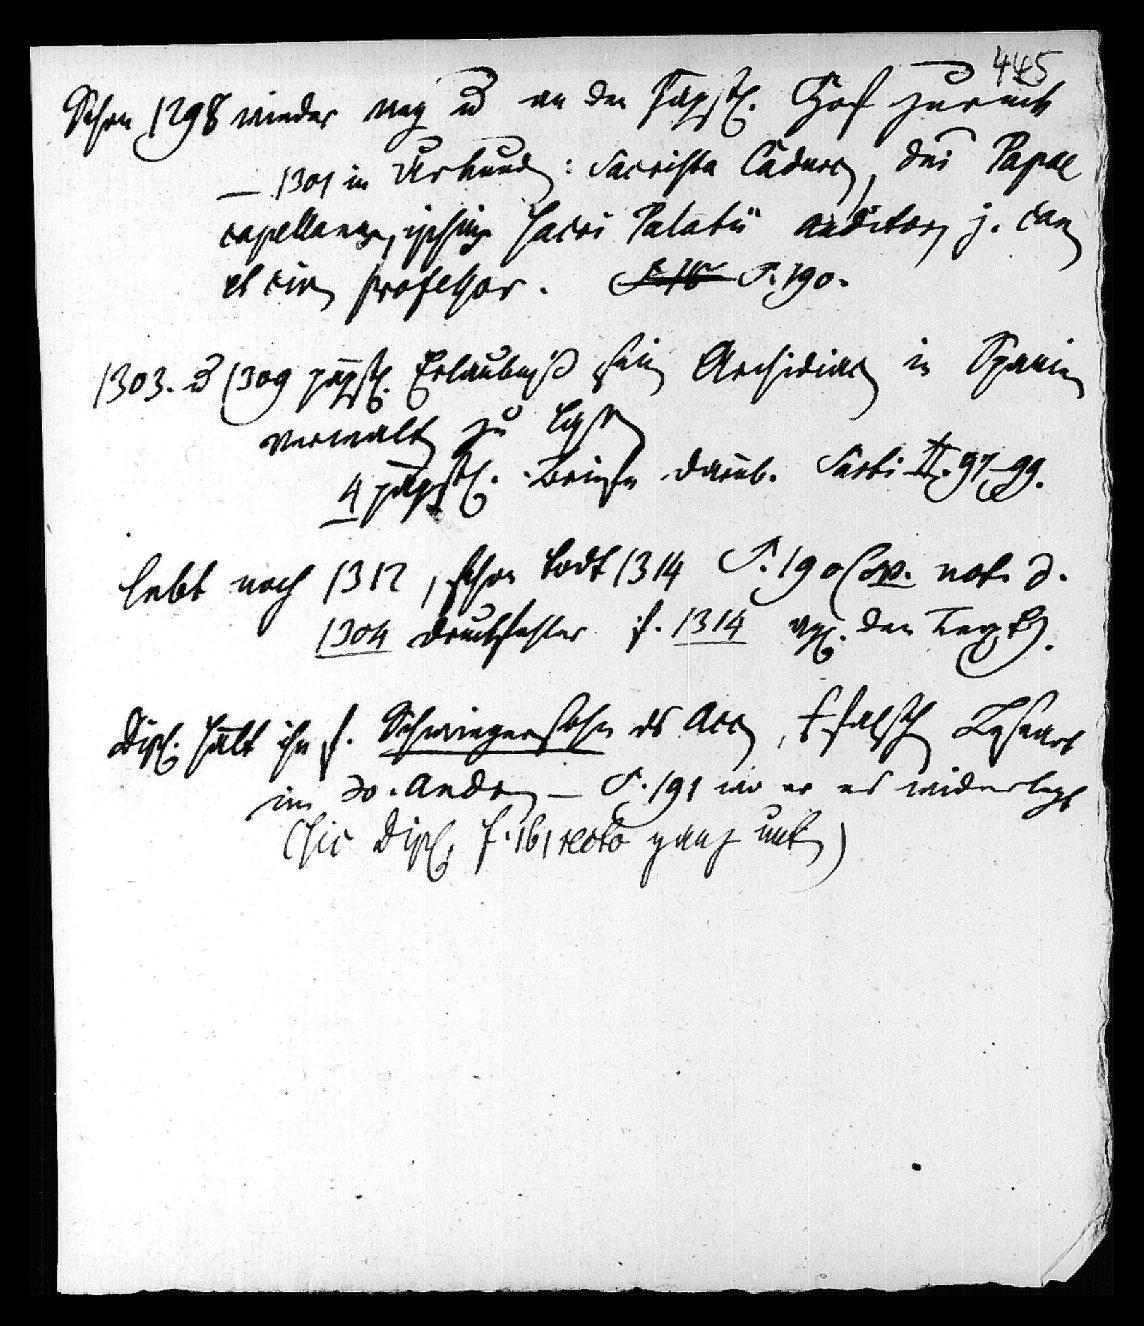 445
Schon 1298 wieder weg u an den Päpstl. Hof zurück
— 1301 in Urkund: Sacrista Cadurc, dni Papae
capellanus, ipsius sacri Palatii auditor, j. can
et civ professor. S. 190.
1303. u 1309 päpstl. Erlaubniß sein Archidiac in Spanien
verwalt zu lass
4 päpstl. Briefe darüb. Sarti II. 97–99.
lebt noch 1312, schon todt 1314 S. 190 not. d.
1304 Druckfehler f. 1314 vgl. den Text.
Dipl. hält ihn f. Schwiegersohn ds Acc, falsch
im Jo. Andr — S. 191 wo er es widerlegt
(hic Dipl. f. 161 recto ganz unt)